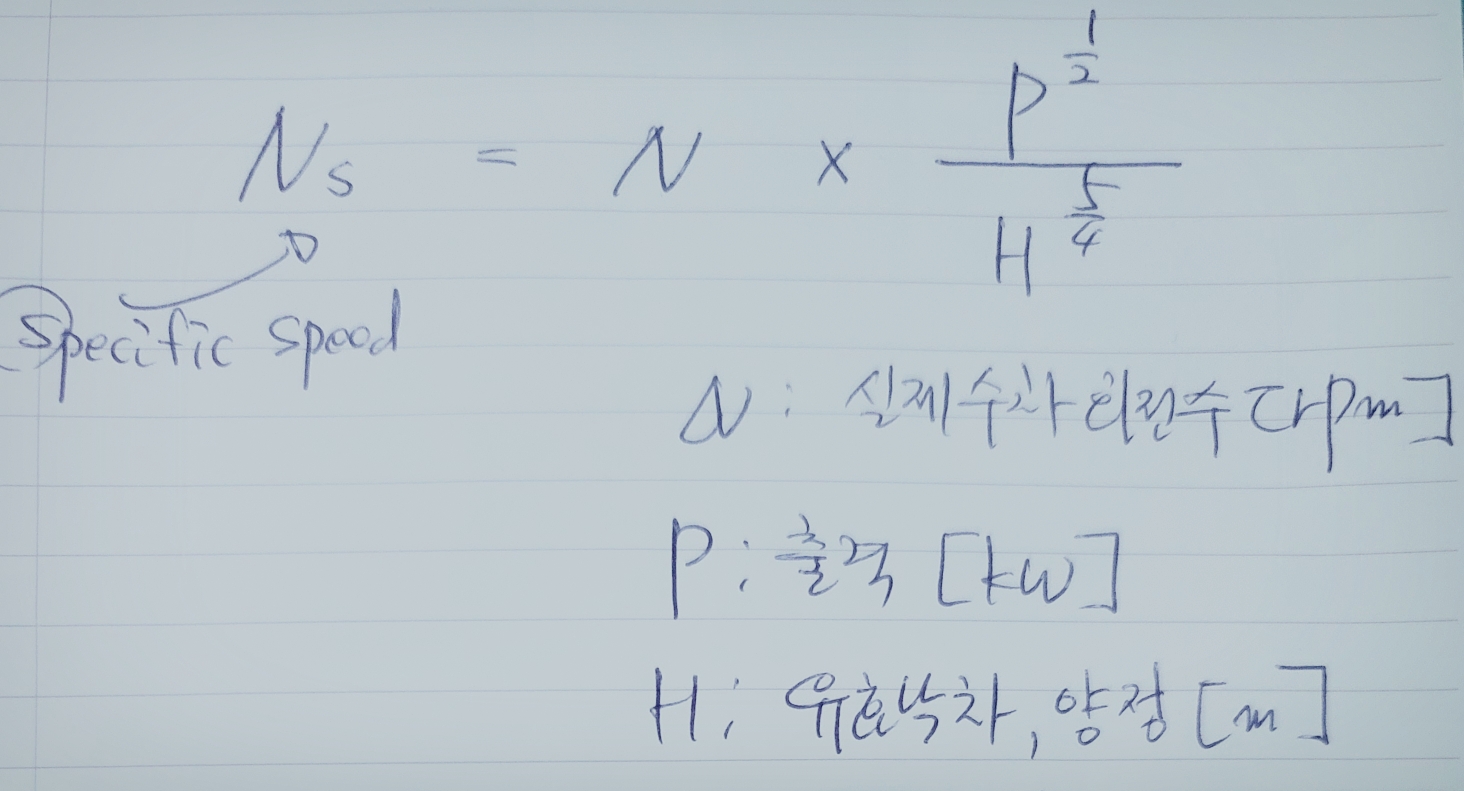 Ns = N × P^(1/2) / H^(5/4)
Specific Speed
N : 실제 수차 회전수 [rpm]
P : 출력 [kW]
H : 유효낙차, 양정 [m]